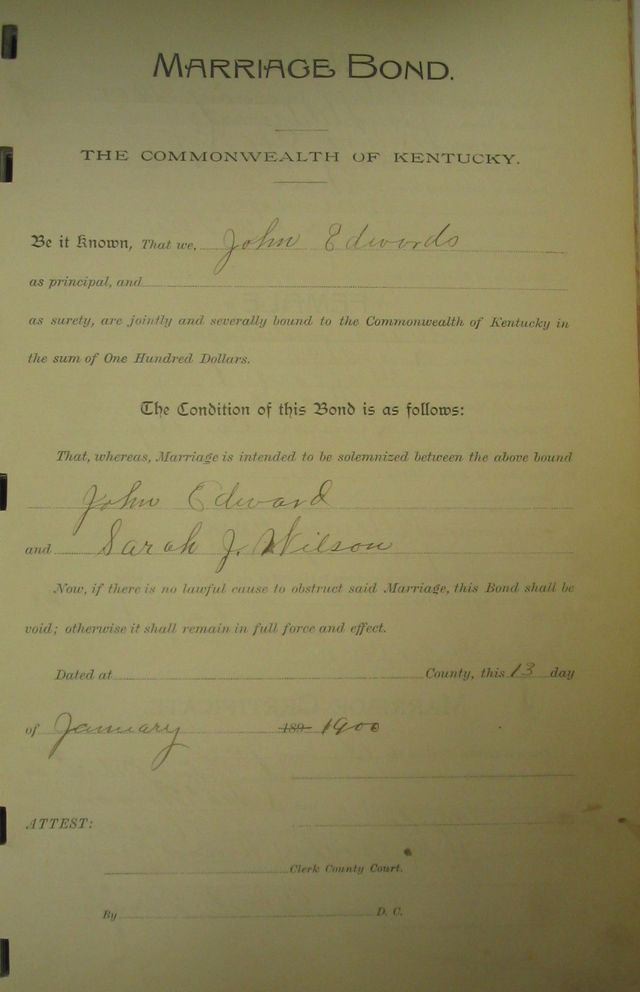 MARRIAGE BOND.
THE COMMONWEALTH OF KENTUCKY.
Be it Known, That we, John Edwards
as principal, and
as surety, are jointly and severally bound to the Commonwealth of Kentucky in
the sum of One Hundred Dollars.
The Condition of this Bond is as follows:
That, whereas, Marriage is intended to be solemnized between the above bound
John Edward
and Sarah J. Wilson
Now, if there is no lawful cause to obstruct said Marriage, this Bond shall be
void; otherwise it shall remain in full force and effect.
Dated at County, this 13 day
of January 189 1900
ATTEST:
Clerk County Court.
By D. C.